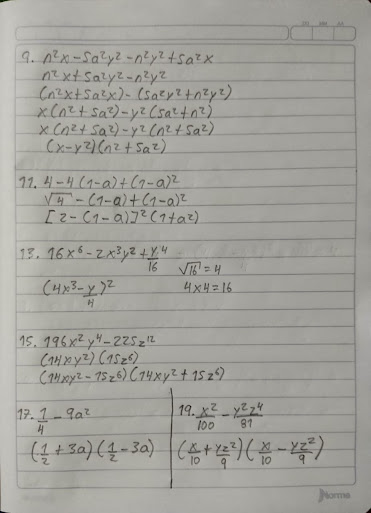 DD MM AA
9. n²x - 5a²y² - n²y² + 5a²x
n²x + 5a²y² - n²y²
(n²x + 5a²x) - (5a²y² + n²y²)
x(n² + 5a²) - y²(5a² + n²)
x(n² + 5a²) - y²(n² + 5a²)
(x - y²)(n² + 5a²)
11. 4 - 4(1-a) + (1-a)²
√4 - (1-a) + (1-a)²
[2 - (1-a)]² (1+a²)
13. 16x⁶ - 2x³y² + y⁴/16
√16 = 4
(4x³ - y/4)²
4x4 = 16
15. 196x²y⁴ - 225z¹²
(14xy²) (15z⁶)
(14xy² - 15z⁶)(14xy² + 15z⁶)
17. 1/4 - 9a²
(1/2 + 3a)(1/2 - 3a)
19. x²/100 - y²z⁴/81
(x/10 + yz²/9)(x/10 - yz²/9)
Norma